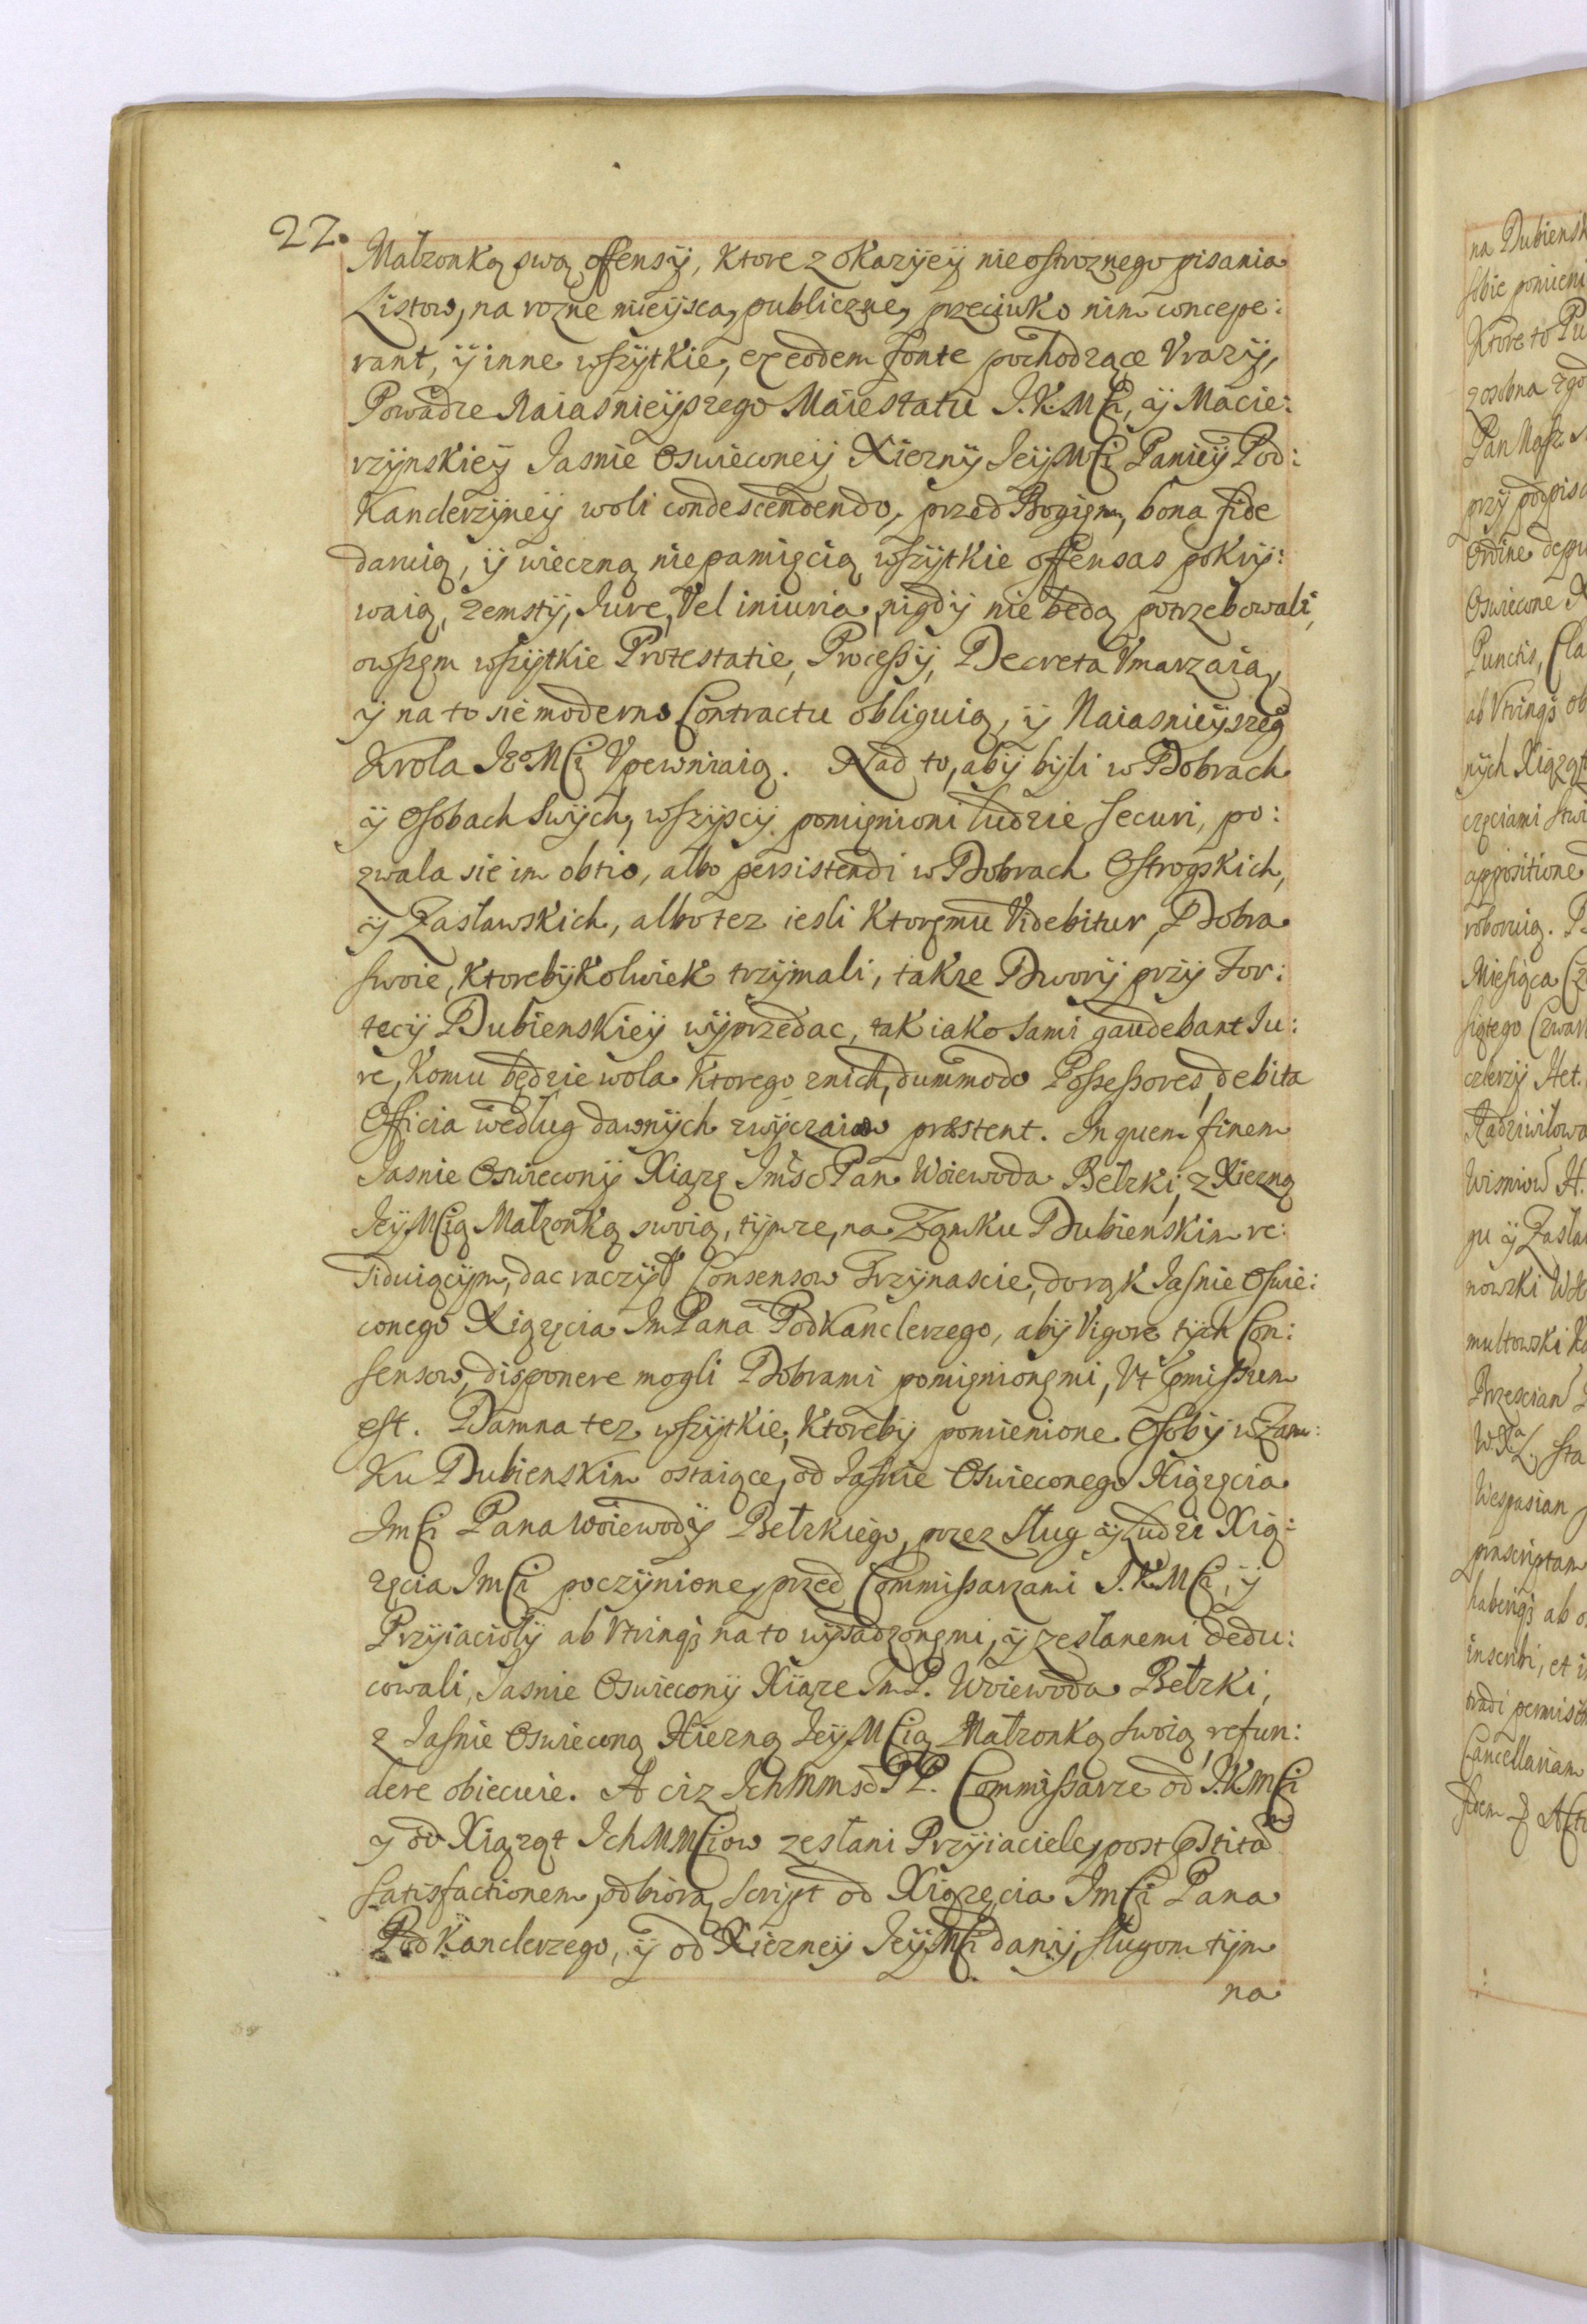 22.
Małzonką swą offensÿ, Ktore z okazÿeÿ nieostroznego pisania
Listow, na rozne mieÿsca, publiczne, przeciwko nim concepe:
rant, ÿ inne wszÿtkie, ex eodem fonte pochodzące Vrazÿ,
Powadze Naiasnieÿszego Maiestatu J.K.MCi, ÿ Macie:
rzÿnskieÿ Jasnie Oswieconeÿ Xieznÿ JeÿMCi Panieÿ Pod:
Kanclerzÿneÿ woli condescendendo, przed Bogięm, bona fide
daruią, ÿ wieczną niepamięcią wszÿtkie offensas pokrÿ:
waią, zemstÿ, Jure, Vel iniuria, nigdÿ nie będą potrzebowali,
owszęm wszÿtkie Protestatie, Processÿ, Decreta Vmarzaią,
ÿ na to sie moderno Contractu obliguią, ÿ Naiasnieÿszeg
Krola JeoMCi Vpewniaią. Nad to, abÿ bÿli w Dobrach
ÿ Osobach swÿch, wszÿscÿ pomięnioni ludzie securi, po:
zwala sie im obtio, albo persistendi w Dobrach Ostrogskich,
ÿ Zasławskich, albo tez iesli Ktoręmu Videbitur, Dobra
swoie, Ktorebÿkolwiek trzÿmali, takze Dworÿ przÿ For:
tecÿ Dubienskieÿ wÿprzedac, tak iako sami gaudebant Ju:
re, komu będzie wola Ktorego znich, dummodo Possessores, debita
Officia według dawnÿch zwÿczaiow præstent. In quem finem
Jasnie Oswieconÿ Xiązę Jmsć Pan Woiewoda Bełzki, z Xiezną
JeÿMCią Małzonką swoią, tÿmze, na Zamku Dubienskim re:
siduiącÿm, dac raczÿł Consensow Trzÿnascie, do rąk Jasnie Oswie:
conego Xiązęcia Jm Pana PodKanclerzego, abÿ Vigore tÿch Con:
sensow, disponere mogli Dobrami pomięnionęmi, Vt Cõmissum
est. Damna tez wszÿtkie, Ktorebÿ pomienione Osobÿ w Zam:
Ku Dubienskim ostaiące, od Jasnie Oswieconego Xiązęcia
JmCi Pana Woiewodÿ Bełzkiego, przez Sług ÿ Ludzi Xią:
zęcia JmCi poczÿnione, przed Commissarzami J.K.MCi, ÿ
Przÿiaciołÿ ab Vtrinq; na to wÿsadzonęmi, ÿ zesłanemi dedu:
cowali, Jasnie Oswieconÿ Xiąze Jm P. Woiewoda Bełzki,
z Jasnie Oswieconą Xiezną JeÿMCią Małzonką swoią, refun:
dere obiecuie. A ciz Ichmmsć PP. Commissarze od J.KMCi
y od Xiąząt IchMMCiow zesłani Przÿiaciele, post
satisfactionem, odbiorą script od Xiązęcia JmCi Pana
PodKanclerzego, ÿ od Xiezneÿ JeÿMCi danÿ, sługom tÿm
na